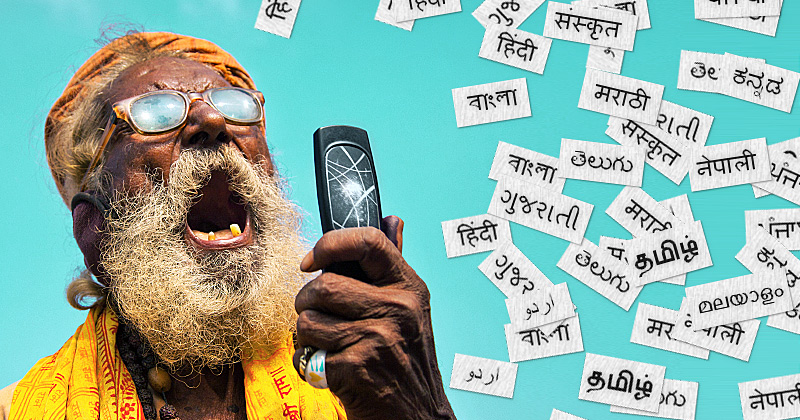 हिंदी
संस्कृत
हिंदी
తె
ಕನ್ನಡ
বাংলা
मराठी
રાતી
संस्कृत
বাংলা
తెలుగు
नेपाली
ગુજરાતી
मरा
हिंदी
தமிழ்
ગુજ
తెలుగు
اردو
മലയാളം
বাংলা
मरा
नेपाली
اردو
தமிழ்
नेपाली